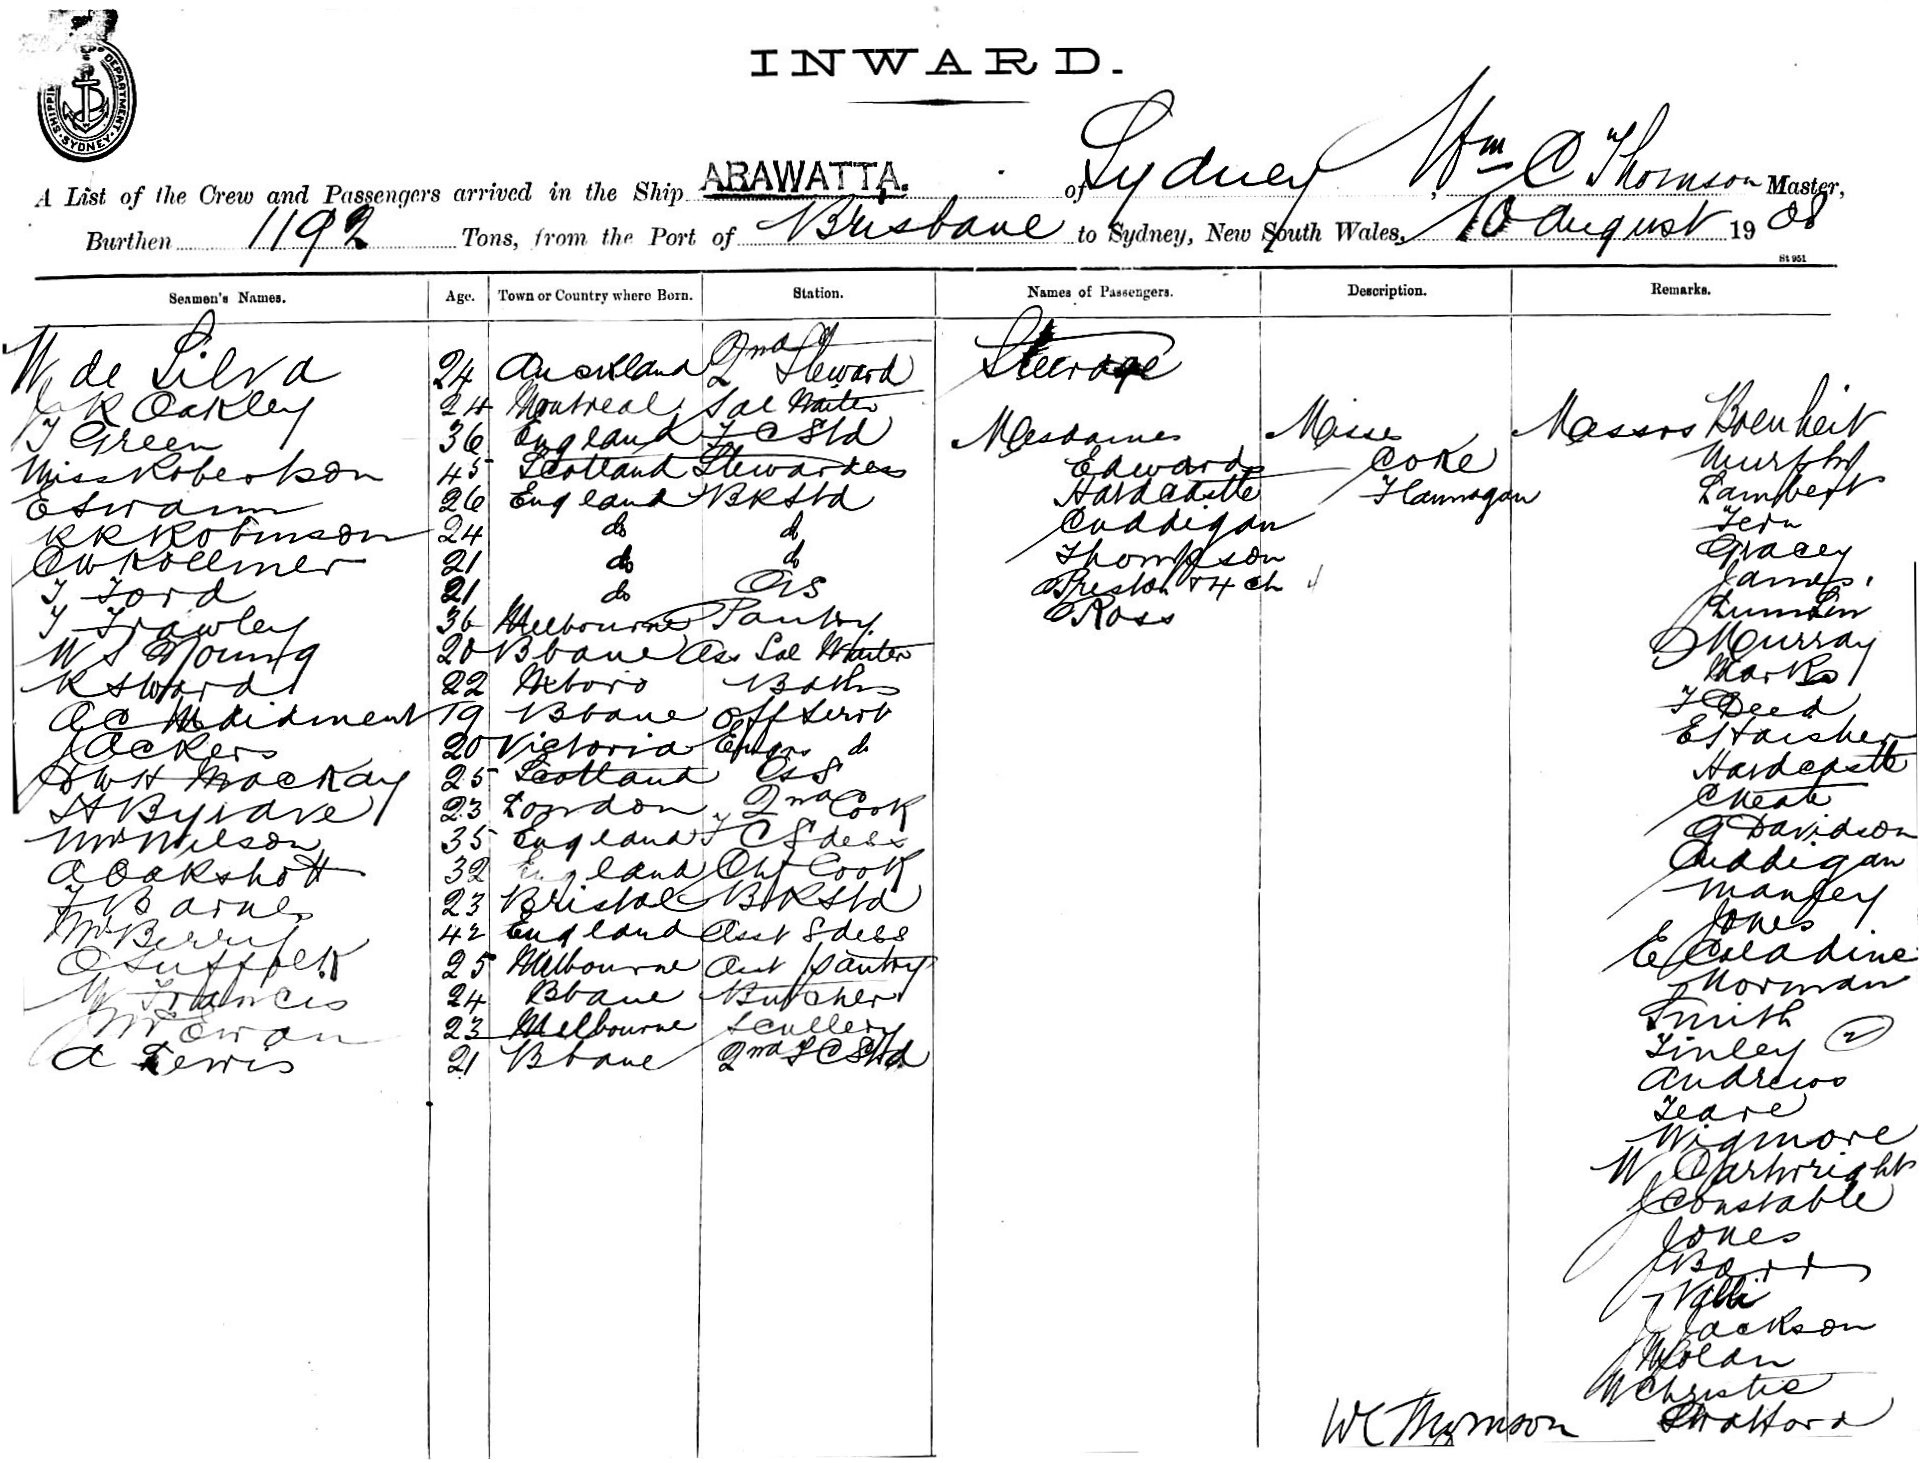 SHIPPING DEPARTMENT SYDNEY
INWARD.
A List of the Crew and Passengers arrived in the Ship ARAWATTA. of Sydney Wm C Thomson Master,
Burthen 1192 Tons, from the Port of Brisbane to Sydney, New South Wales, 10 August 1908
St 951
Seamen's Names. Age. Town or Country where Born. Station. Names of Passengers. Description. Remarks.
W de Silva 24 Auckland 2nd Steward Steerage
J R Oakley 24 Montreal Sal Waiter
T Green 36 England F C Std Mesdames Misses Messrs Boenheit
Miss Robertson 45 Scotland Stewardess Edwards Coke Murphy
E Swann 26 England BR Std Hardcastle Flannagan Lambert
R R Robinson 24 do do Cuddigan Fern
C W Kollmer 21 do do Thompson Gracey
T Ford 21 do OS Preston & 4 ch James
T Frawley 36 Melbourne Pantry Ross Lumsden
W S Young 20 Bbane Ass Sal Waiter J Murray
R S Ward 22 Mboro Baths Marks
A C Maidment 19 Bbane Off Servt T Deed
J Ackers 20 Victoria Engrs do E Haisher
D W H Mackay 25 Scotland OsS Hardcastle
H Bygrave 23 London 2nd Cook Cheate
Wm Wilson 35 England F C S G Davidson
A Oakshott 32 England Chf Cook Cuddigan
F Barnes 23 Bristol BR Std Manley
Wm Berry 42 England Asst Jones
C Suffolk 25 Melbourne Asst Pantry E Coladine
W Francis 24 Bbane Butcher Norman
Wm Ewan 23 Melbourne Scullery Smith
A Lewis 21 Bbane 2nd F C Std Finley (2)
Andrews
Teare
Wigmore
W Cartwright
J Constable
Jones
Barr
J Jackson
W Nolan
W Christie
WC Thomson Stratford